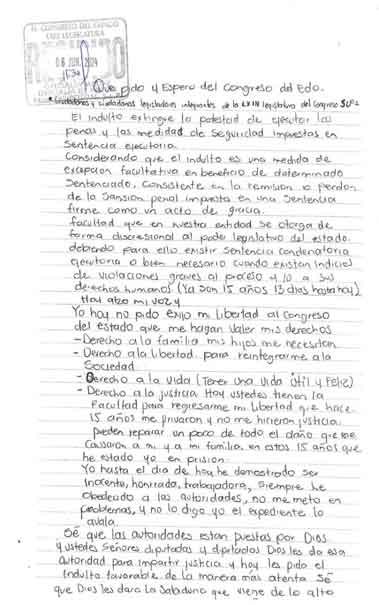 H. CONGRESO DEL ESTADO
LXIII LEGISLATURA
06 JUN. 2024
Que pido y Espero del Congreso del Edo.
Ciudadanas y ciudadanos legisladores integrantes de la LXIII legislativa del Congreso SLP.
El indulto extingue la potestad de ejecutar las
penas y las medidad de Seguridad impuestas en
Sentencia ejecutoria.
Considerando que el indulto es una medida de
excepcion facultativa en beneficio de determinado
Sentenciado, Consistente en la remision o perdon
de la Sansion penal impuesta en una Sentencia
firme como un acto de gracia.
facultad que en nuestra entidad se otorga de
forma discresional al poder legislativo del estado.
debiendo para ello existir Sentencia condenatoria
ejecutoria o bien necesario cuando existan indicios
de violaciones graves al proceso y/o a sus
derechos humanos (Ya son 15 años 13 dias hasta hoy)
Hoy alzo mi voz y
Yo hoy no pido exijo mi libertad al Congreso
del estado que me hagan valer mis derechos
- Derecho a la familia mis hijos me necesitan
- Derecho a la libertad para reintegrarme a la
Sociedad
- Derecho a la Vida (Tener una vida útil y Feliz)
- Derecho a la justicia Hoy ustedes tienen la
Facultad para regresarme mi libertad que hace
15 años me privaron y no me hicieron justicia.
pueden reparar un poco de todo el daño que me
Causaron a mi y a mi familia en estos 15 años que
he estado yo en prision.
Yo hasta el dia de hoy he demostrado ser
inocente, honrada, trabajadora, Siempre he
obedecido a las autoridades, no me meto en
problemas, y no lo digo yo el expediente lo
avala.
Sé que las autoridades estan puestas por Dios
y ustedes Señores diputadas y diputados Dios les da esa
autoridad para impartir justicia y hoy les pido el
Indulto favorable de la manera mas atenta Sé
que Dios les dara la Sabiduria que viene de lo alto